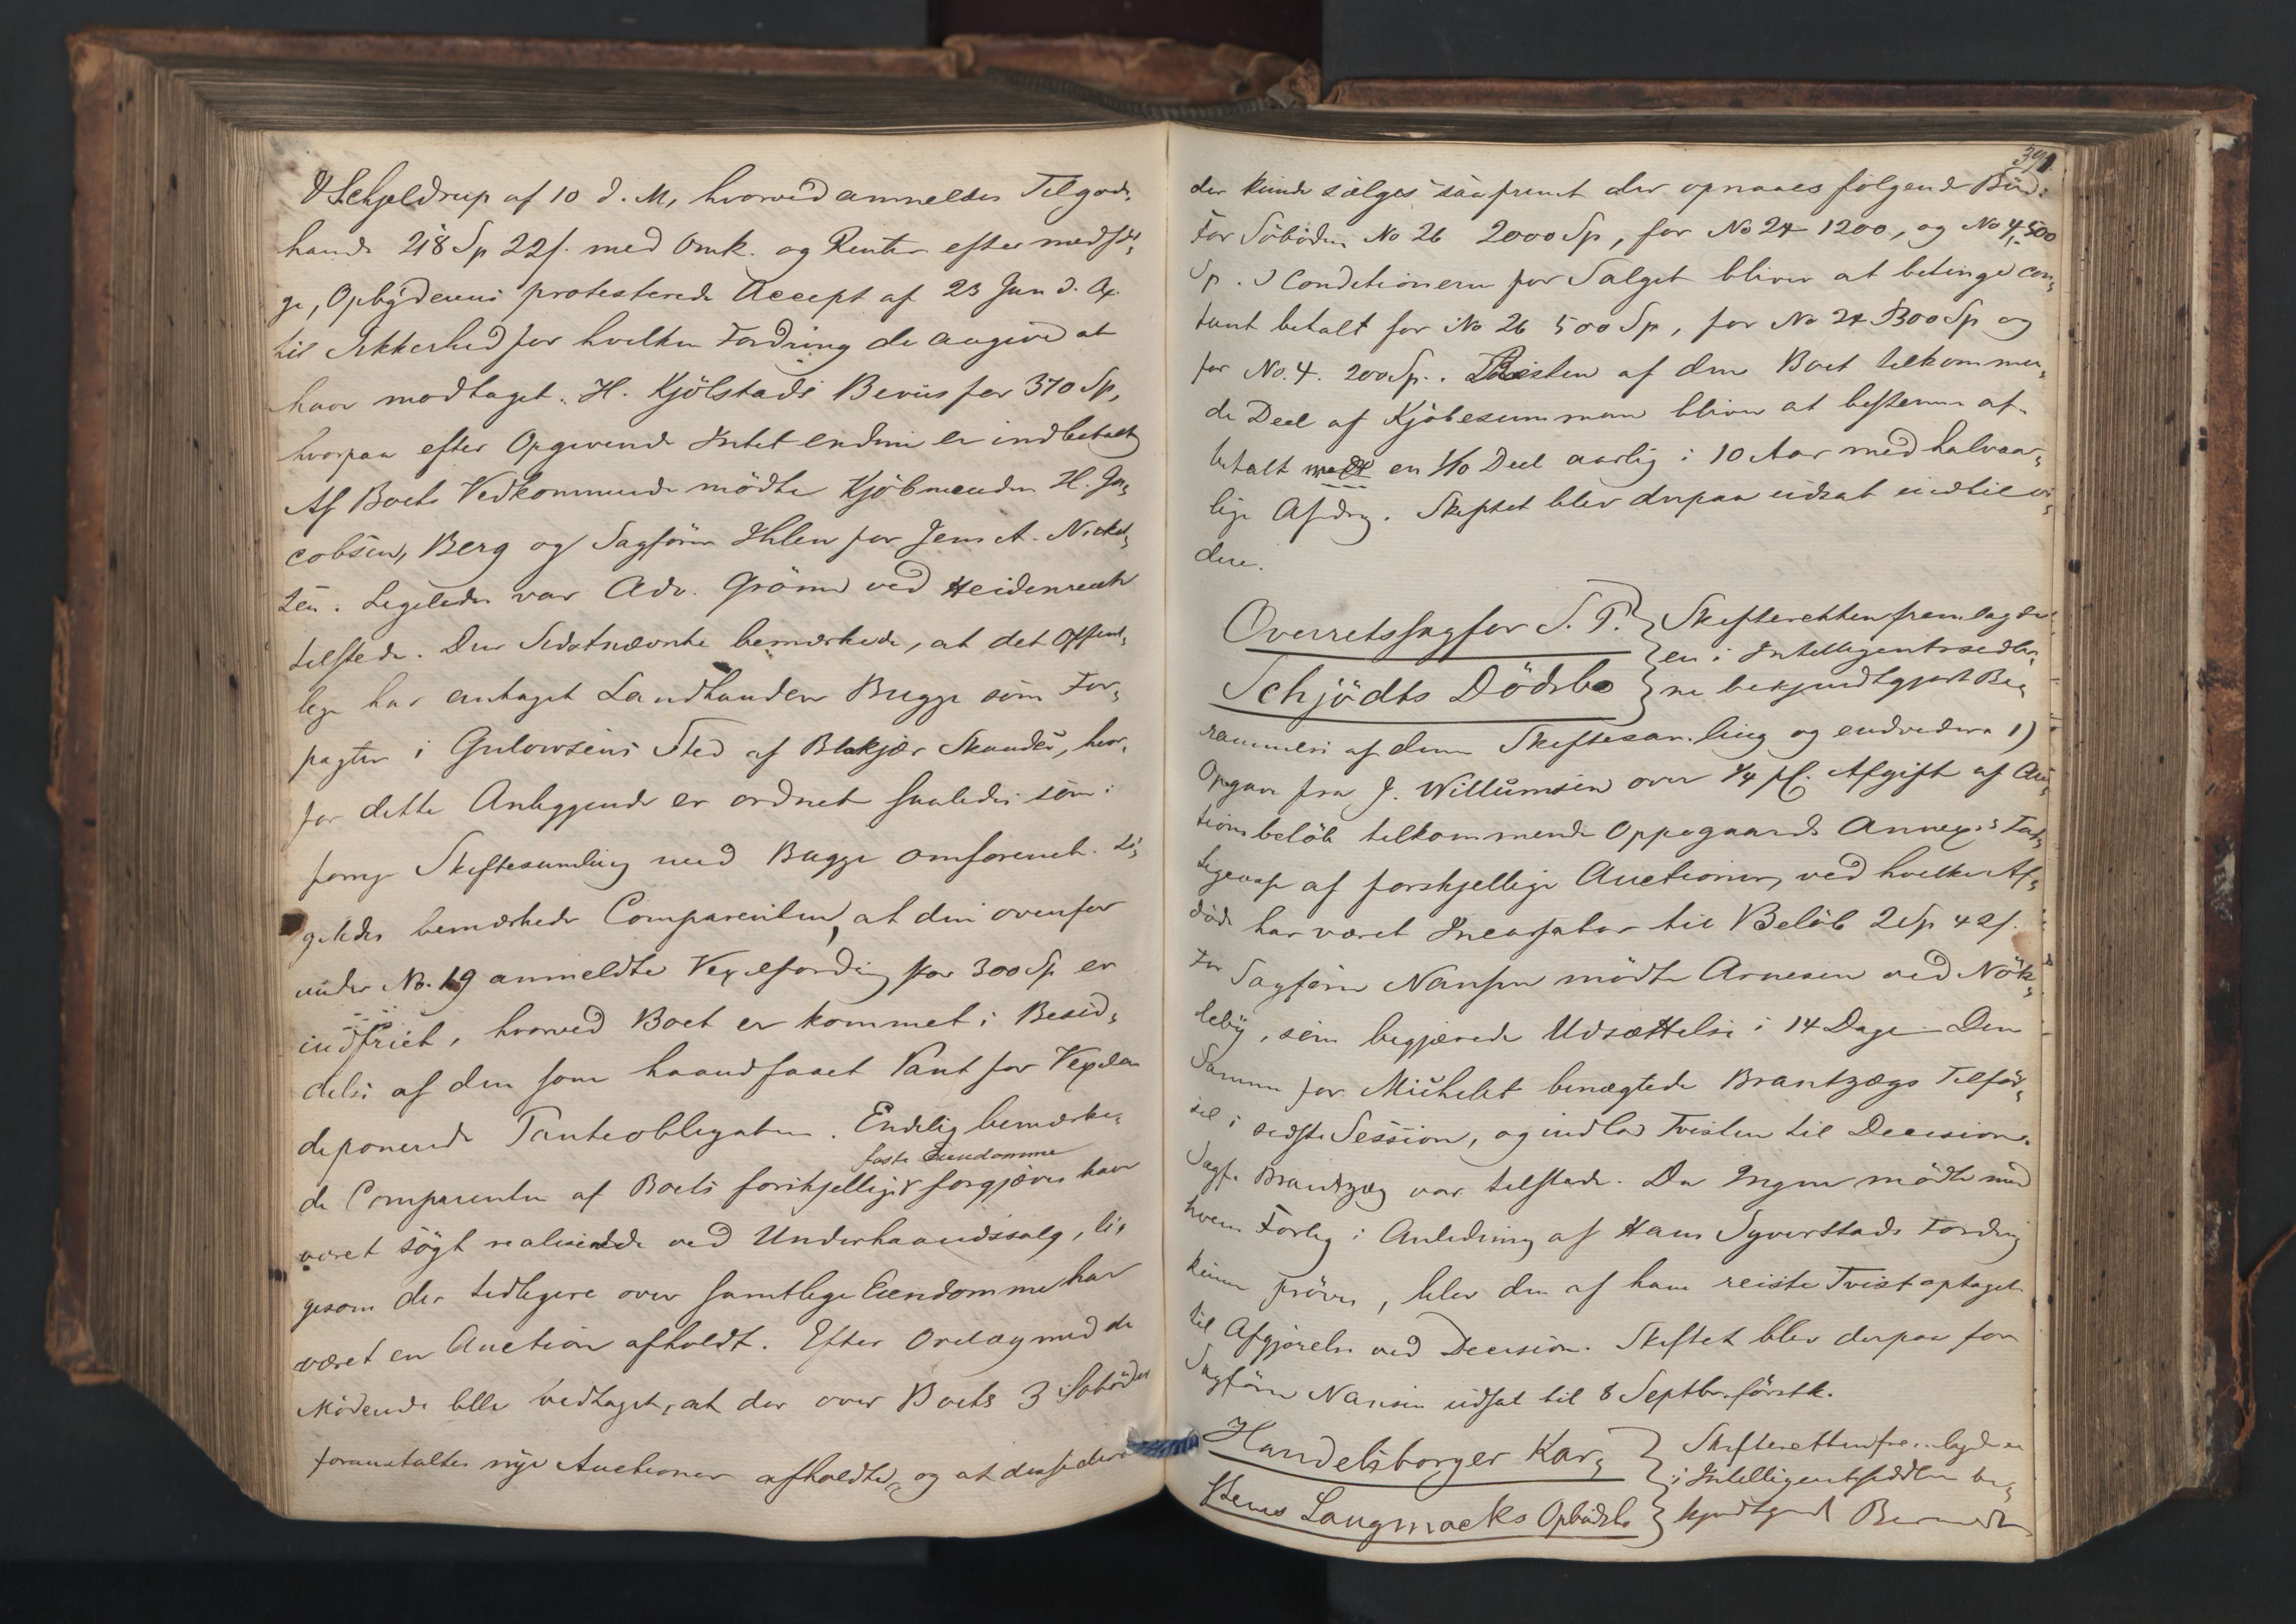 & Schjeldrup af 10 d. M, hvorved anmeldes Tilgode¬
hande 218 Sp 22 s. med Omk. og Renter efter medføl¬
ge, Opbyderens protesterede Accept af 23 Jan d. A.
til Sikkerhed for hvilken Fordring de angive at
have modtaget H. Kjölstads Beviis for 370 Sp,
hvorpaa efter Opgivende Intet endnu er indbetalt
Af Boets Vedkommende mödte Kjöbmændene H. Ja¬
cobsen, Berg og Sagförer Ihlen for Jens A. Nickel¬
sen. Ligeledes var Adv. Grönn ved Heidenreich
tilstede. Den Sidstnævnte bemærkede, at det Offent¬
lige har antaget Landhandler Bugge som For¬
pagter i Gulowsens Sted af Blakjer Skands, hvor¬
for dette Anliggende er ordnet saaledes som i
forrige Skiftesamling med Bugge omforenet. Li¬
geledes bemærkede Comparenten, at den ovenfor
under No. 19 anmeldte Vexelfordring for 300 Sp er
indfriet, hvorved Boet er kommet i Besid¬
delse af den som haandfaaet Pant for Vexelen
deponerede Panteobligation. Endelig bemærke¬
de Comparenten af Boets forskjellige faste Eiendomme forgjæves har
været sögt realiserede ved Underhaandssalg, li¬
gesom der tidligere over samtlige Eiendomme har
været en Auction afholdt. Efter Overlæg med de
Mödende blev vedtaget, at der over Boets 3 Söboder
foranstaltes nye Auctioner afholdte, og at disse der
391.
der kunde sælges saafremt der opnaaes følgende Bud:
For Söboden No 26 2000 Sp, for No 24 1200, og No 4, 500
Sp. I Conditionerne for Salget bliver at betinge con¬
tant betalt for No 26 500 Sp, for No 24 300 Sp og
for No. 4. 200 Sp. Resten af den Boet tilkommen¬
de Deel af Kjöbesummen bliver at bestemme af¬
betalt med en 1/10 Deel aarlig i 10 Aar med halvaar¬
lige Afdrag. Skiftet blev derpaa udsat indtil vi¬
dere.
Overretssagfør S. P.
Schjödts Dödsbo
Skifteretten fremlagde
en i Intelligentssedler¬
ne bekjendtgjort Be¬
rammelse af denne Skiftesamling og endvidere 1)
Opgave fra J. Willumsen over 1/4 pC. Afgift af Auc¬
tionsbelöb tilkommende Oppegaards Annexes Fat¬
tigcasse af forskjellige Auctioner, ved hvilke Af¬
döde har været Incassator til Belöb 2 Sp 42 s.
For Sagförer Nansen mödte Arnesen ved Nök¬
leby, som begjærede Udsættelse i 14 Dage. Den
Samme for Michelet benægtede Brantzægs Tilför¬
sel i sidste Session, og indlod Tvisten til Decision.
Sagf. Brantzæg var tilstede. Da Ingen mödte med
hvem Forlig i Anledning af Hans Syverstads Fordring
kunne pröves, blev den af ham reiste Tvist optaget
til Afgjörelse ved Decision. Skiftet blev derpaa for
Sagförer Nansen udsat til 8 Septbr. förstk.
Handelsborger Kar¬
stens Langmacks Opbudsbo
Skifteretten fremlagde en
i Intelligentssedlerne be¬
kjendtgjort Beramm